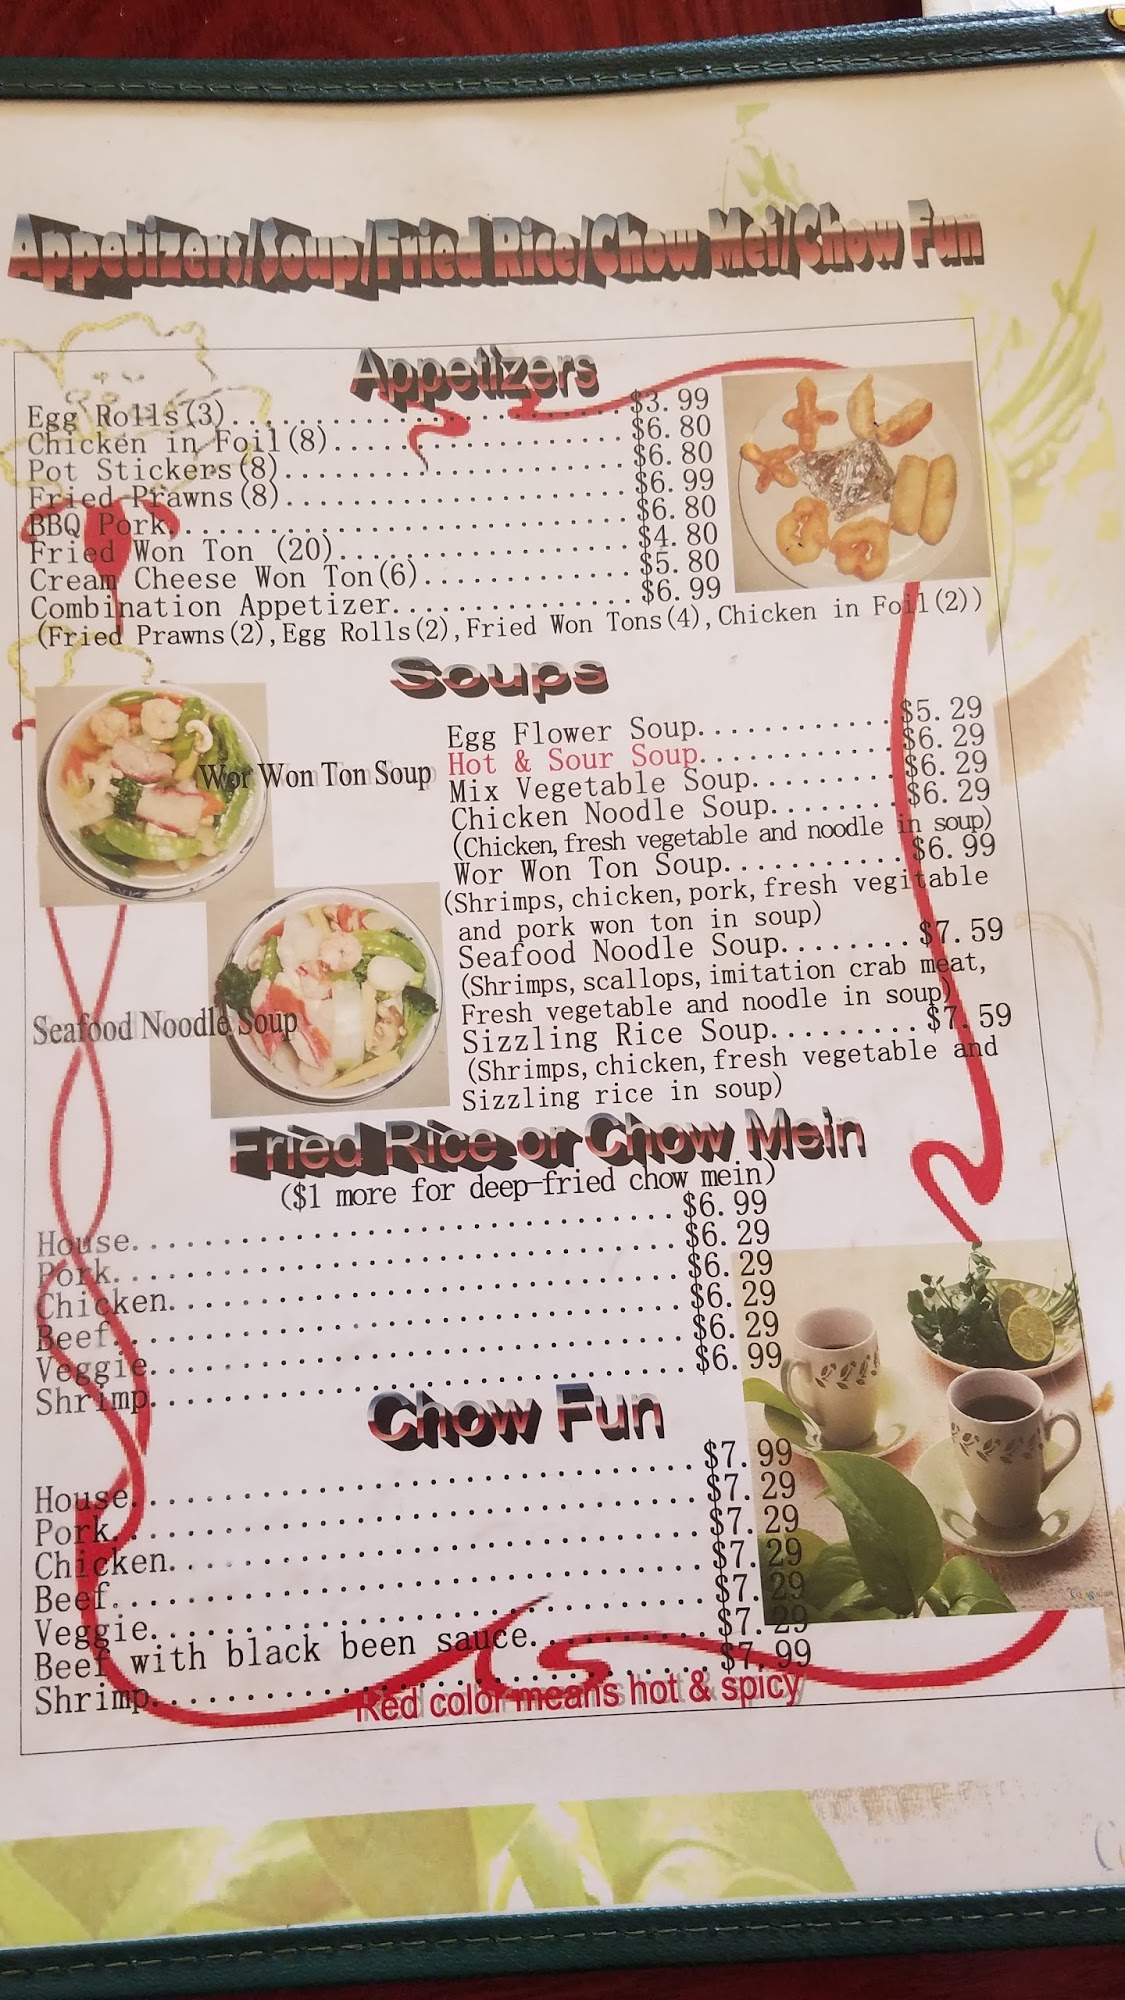 Appetizers/Soup/Fried Rice/Chow Mei/Chow Fun
Appetizers
Egg Rolls(3)..............................$3.99
Chicken in Foil(8)....................$6.80
Pot Stickers(8).......................$6.80
Fried Prawns(8).......................$6.99
BBQ Pork..............................$6.80
Fried Won Ton (20)...................$4.80
Cream Cheese Won Ton(6).............$5.80
Combination Appetizer...............$6.99
(Fried Prawns(2),Egg Rolls(2),Fried Won Tons(4),Chicken in Foil(2))
Soups
Wor Won Ton Soup
Seafood Noodle Soup
Egg Flower Soup............$5.29
Hot & Sour Soup............$6.29
Mix Vegetable Soup.........$6.29
Chicken Noodle Soup........$6.29
(Chicken, fresh vegetable and noodle in soup)
Wor Won Ton Soup...........$6.99
(Shrimps, chicken, pork, fresh vegitable
and pork won ton in soup)
Seafood Noodle Soup........$7.59
(Shrimps, scallops, imitation crab meat,
Fresh vegetable and noodle in soup)
Sizzling Rice Soup.........$7.59
(Shrimps, chicken, fresh vegetable and
Sizzling rice in soup)
Fried Rice or Chow Mein
($1 more for deep-fried chow mein)
House..................................$6.99
Pork...................................$6.29
Chicken................................$6.29
Beef...................................$6.29
Veggie.................................$6.29
Shrimp.................................$6.99
Chow Fun
House..................................$7.99
Pork...................................$7.29
Chicken................................$7.29
Beef...................................$7.29
Veggie.................................$7.29
Beef with black been sauce..........$7.29
Shrimp.................................$7.99
Red color means hot & spicy